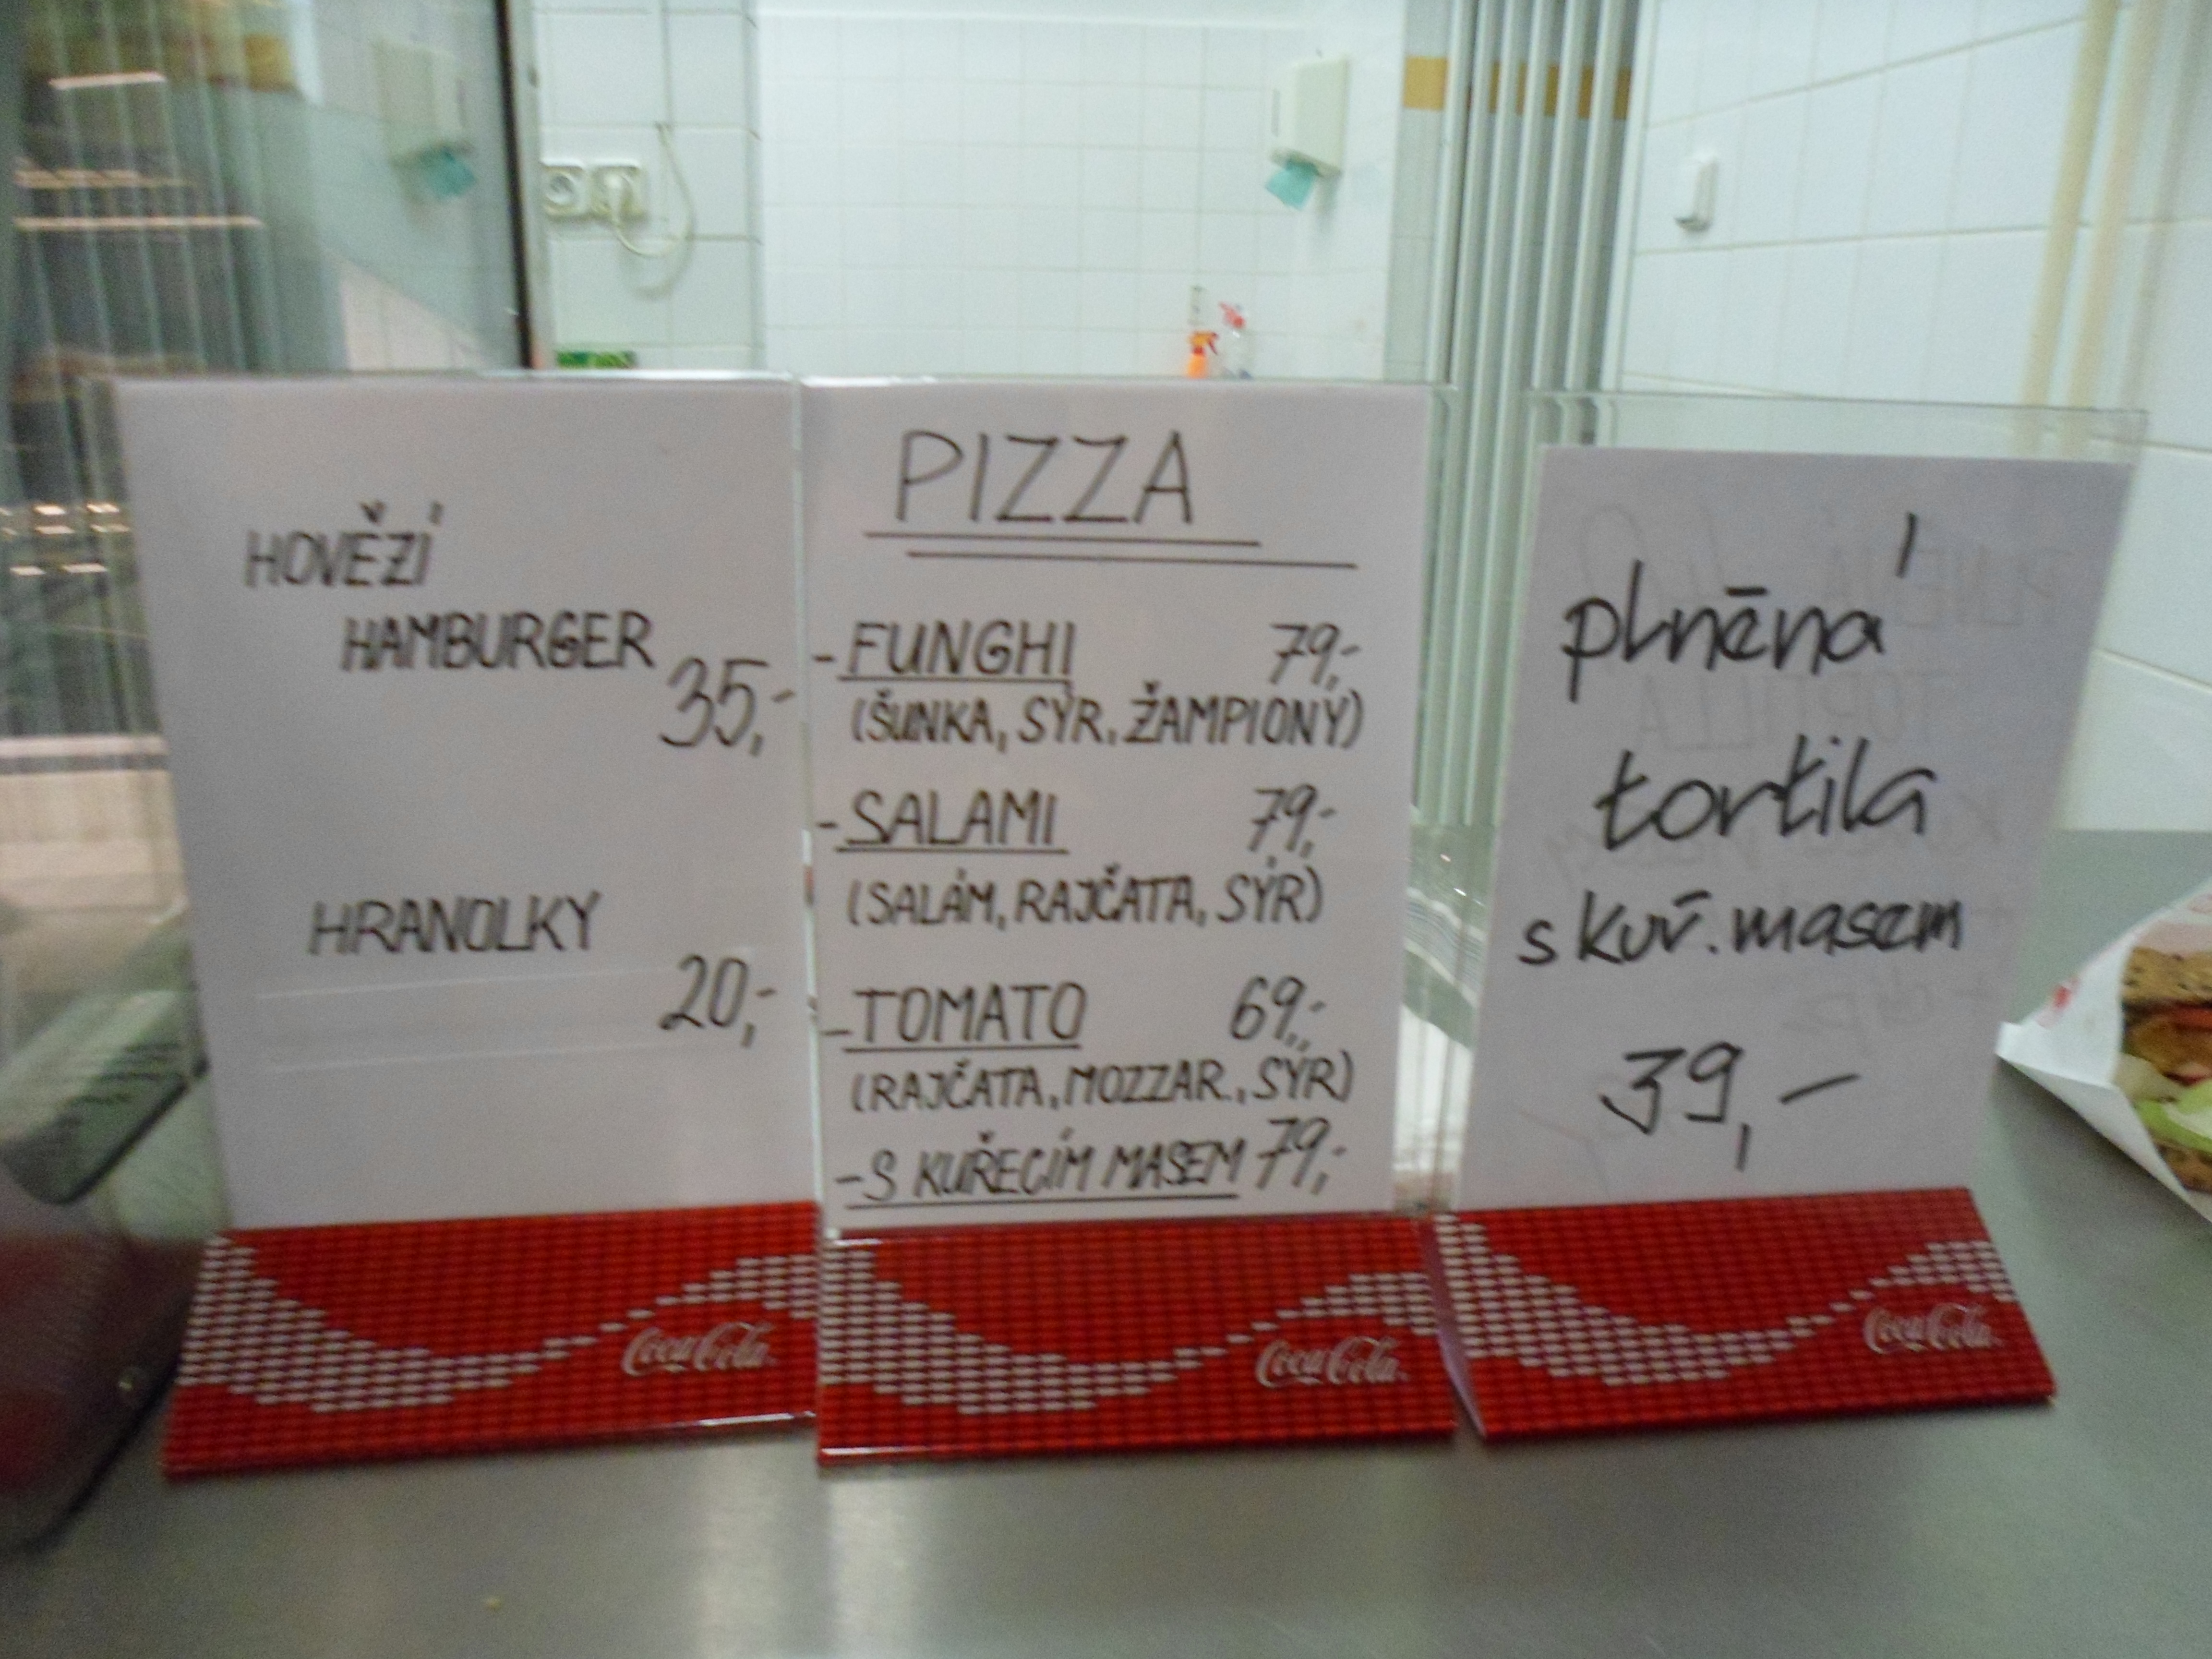 HOVĚZÍ
HAMBURGER
35,-
HRANOLKY
20,-
PIZZA
- FUNGHI 79,-
(ŠUNKA, SÝR, ŽAMPIONY)
- SALAMI 79,-
(SALÁM, RAJČATA, SÝR)
- TOMATO 69,-
(RAJČATA, MOZZAR., SÝR)
- S KUŘECÍM MASEM 79,-
plněná
tortila
s kuř. masem
39,-
Coca-Cola
Coca-Cola
Coca-Cola